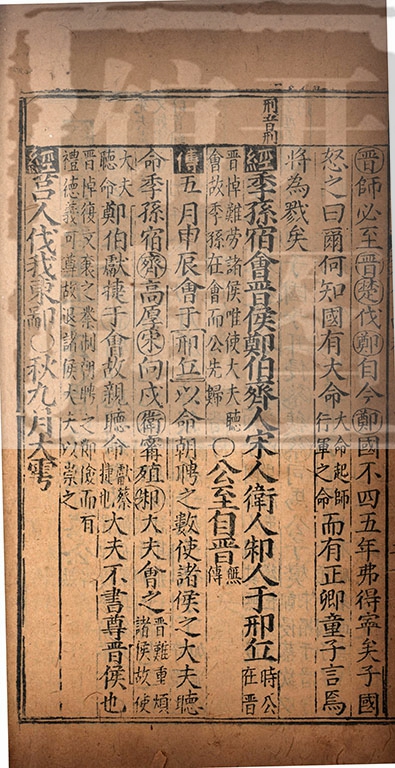 晉師必至晉楚伐鄭自今鄭國不四五年弗得寧矣子國
怒之曰爾何知國有大命大命起師行軍之命而有正卿童子言焉
將為戮矣
邢音刑
經季孫宿會晉侯鄭伯齊人宋人衛人邾人于邢丘時公在晉
晉悼難勞諸侯唯使大夫聽會故季孫在會而公先歸○公至自晉無傳
傳五月甲辰會于邢丘以命朝聘之數使諸侯之大夫聽
命季孫宿齊高厚宋向戌衛甯殖邾大夫會之晉難重煩諸侯故使
大夫聽命鄭伯獻捷于會故親聽命獻蔡捷也大夫不書尊晉侯也
晉悼復文襄之業制朝聘之節儉而有禮德義可尊故退諸侯大夫以崇之
經莒人伐我東鄙○秋九月大雩